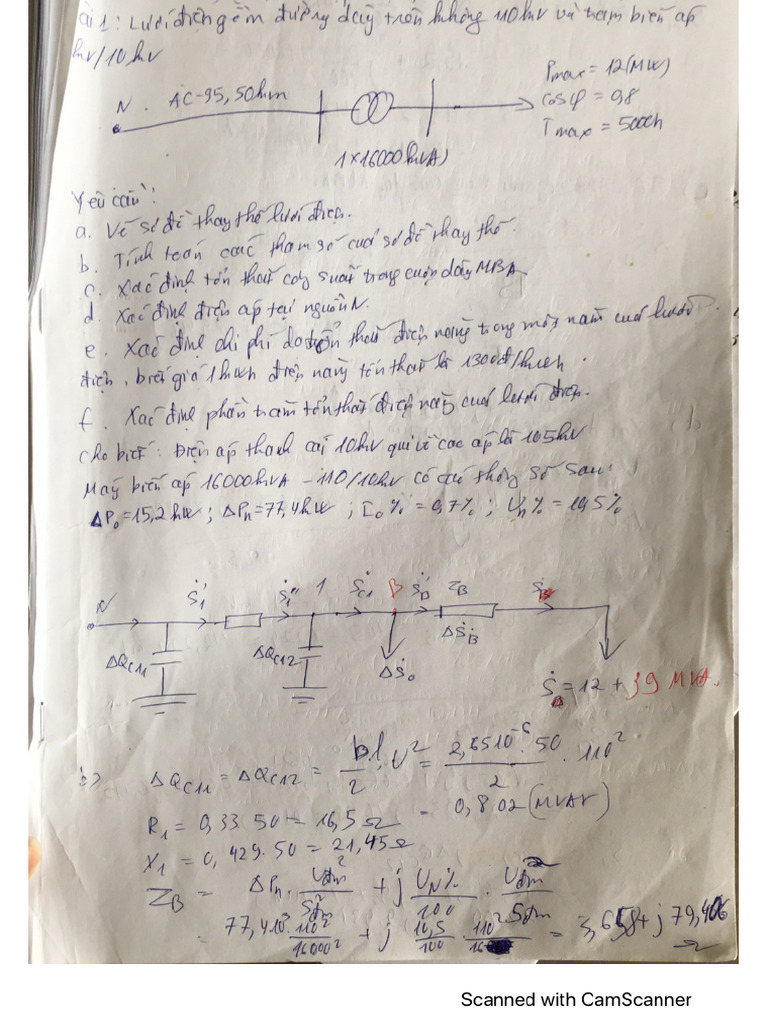 ài 1: Lưới điện gồm đường dây trên không 110kV và trạm biến áp
kV/10kV
N. AC-95, 50km
Pmax = 12(MW)
cosφ = 0,8
Tmax = 5000h
1×16000(kVA)
Yêu cầu:
a. Vẽ sơ đồ thay thế lưới điện.
b. Tính toán các tham số của sơ đồ thay thế.
c. Xác định tổn thất công suất trong cuộn dây MBA
d. Xác định điện áp tại nguồn N.
e. Xác định chi phí do tổn thất điện năng trong một năm của lưới
điện, biết giá 1kWh điện năng tổn thất là 1300đ/kWh.
f. Xác định phần trăm tổn thất điện năng của lưới điện.
Cho biết: Điện áp thanh cái 10kV qui về cao áp là 105kV
Máy biến áp 16000kVA - 110/10kV có các thông số sau:
ΔP₀=15,2kW; ΔPn=77,4kW; I₀%=0,7%; Un%=10,5%
N Ṡ'₁ Ṡ''₁ 1 ṠC1 B Ṡ'B ZB ṠB
ΔQC11 ΔQC12 ΔṠ₀ ΔṠB
ṠB = 12 + j9 MVA.
b> ΔQC11 = ΔQC12 = bl/2 . U² = 2,65.10⁻⁶.50/2 . 110²
= 0,802 (MVAr)
R₁ = 0,33.50 = 16,5Ω
X₁ = 0,429.50 = 21,45Ω
ZB = ΔPn . U²đm/S²đm + j UN%/100 . U²đm/Sđm
= 77,4.10³.110²/16000² + j 10,5/100 . 110²/16 = 3,658 + j 79,406
Ω
Scanned with CamScanner